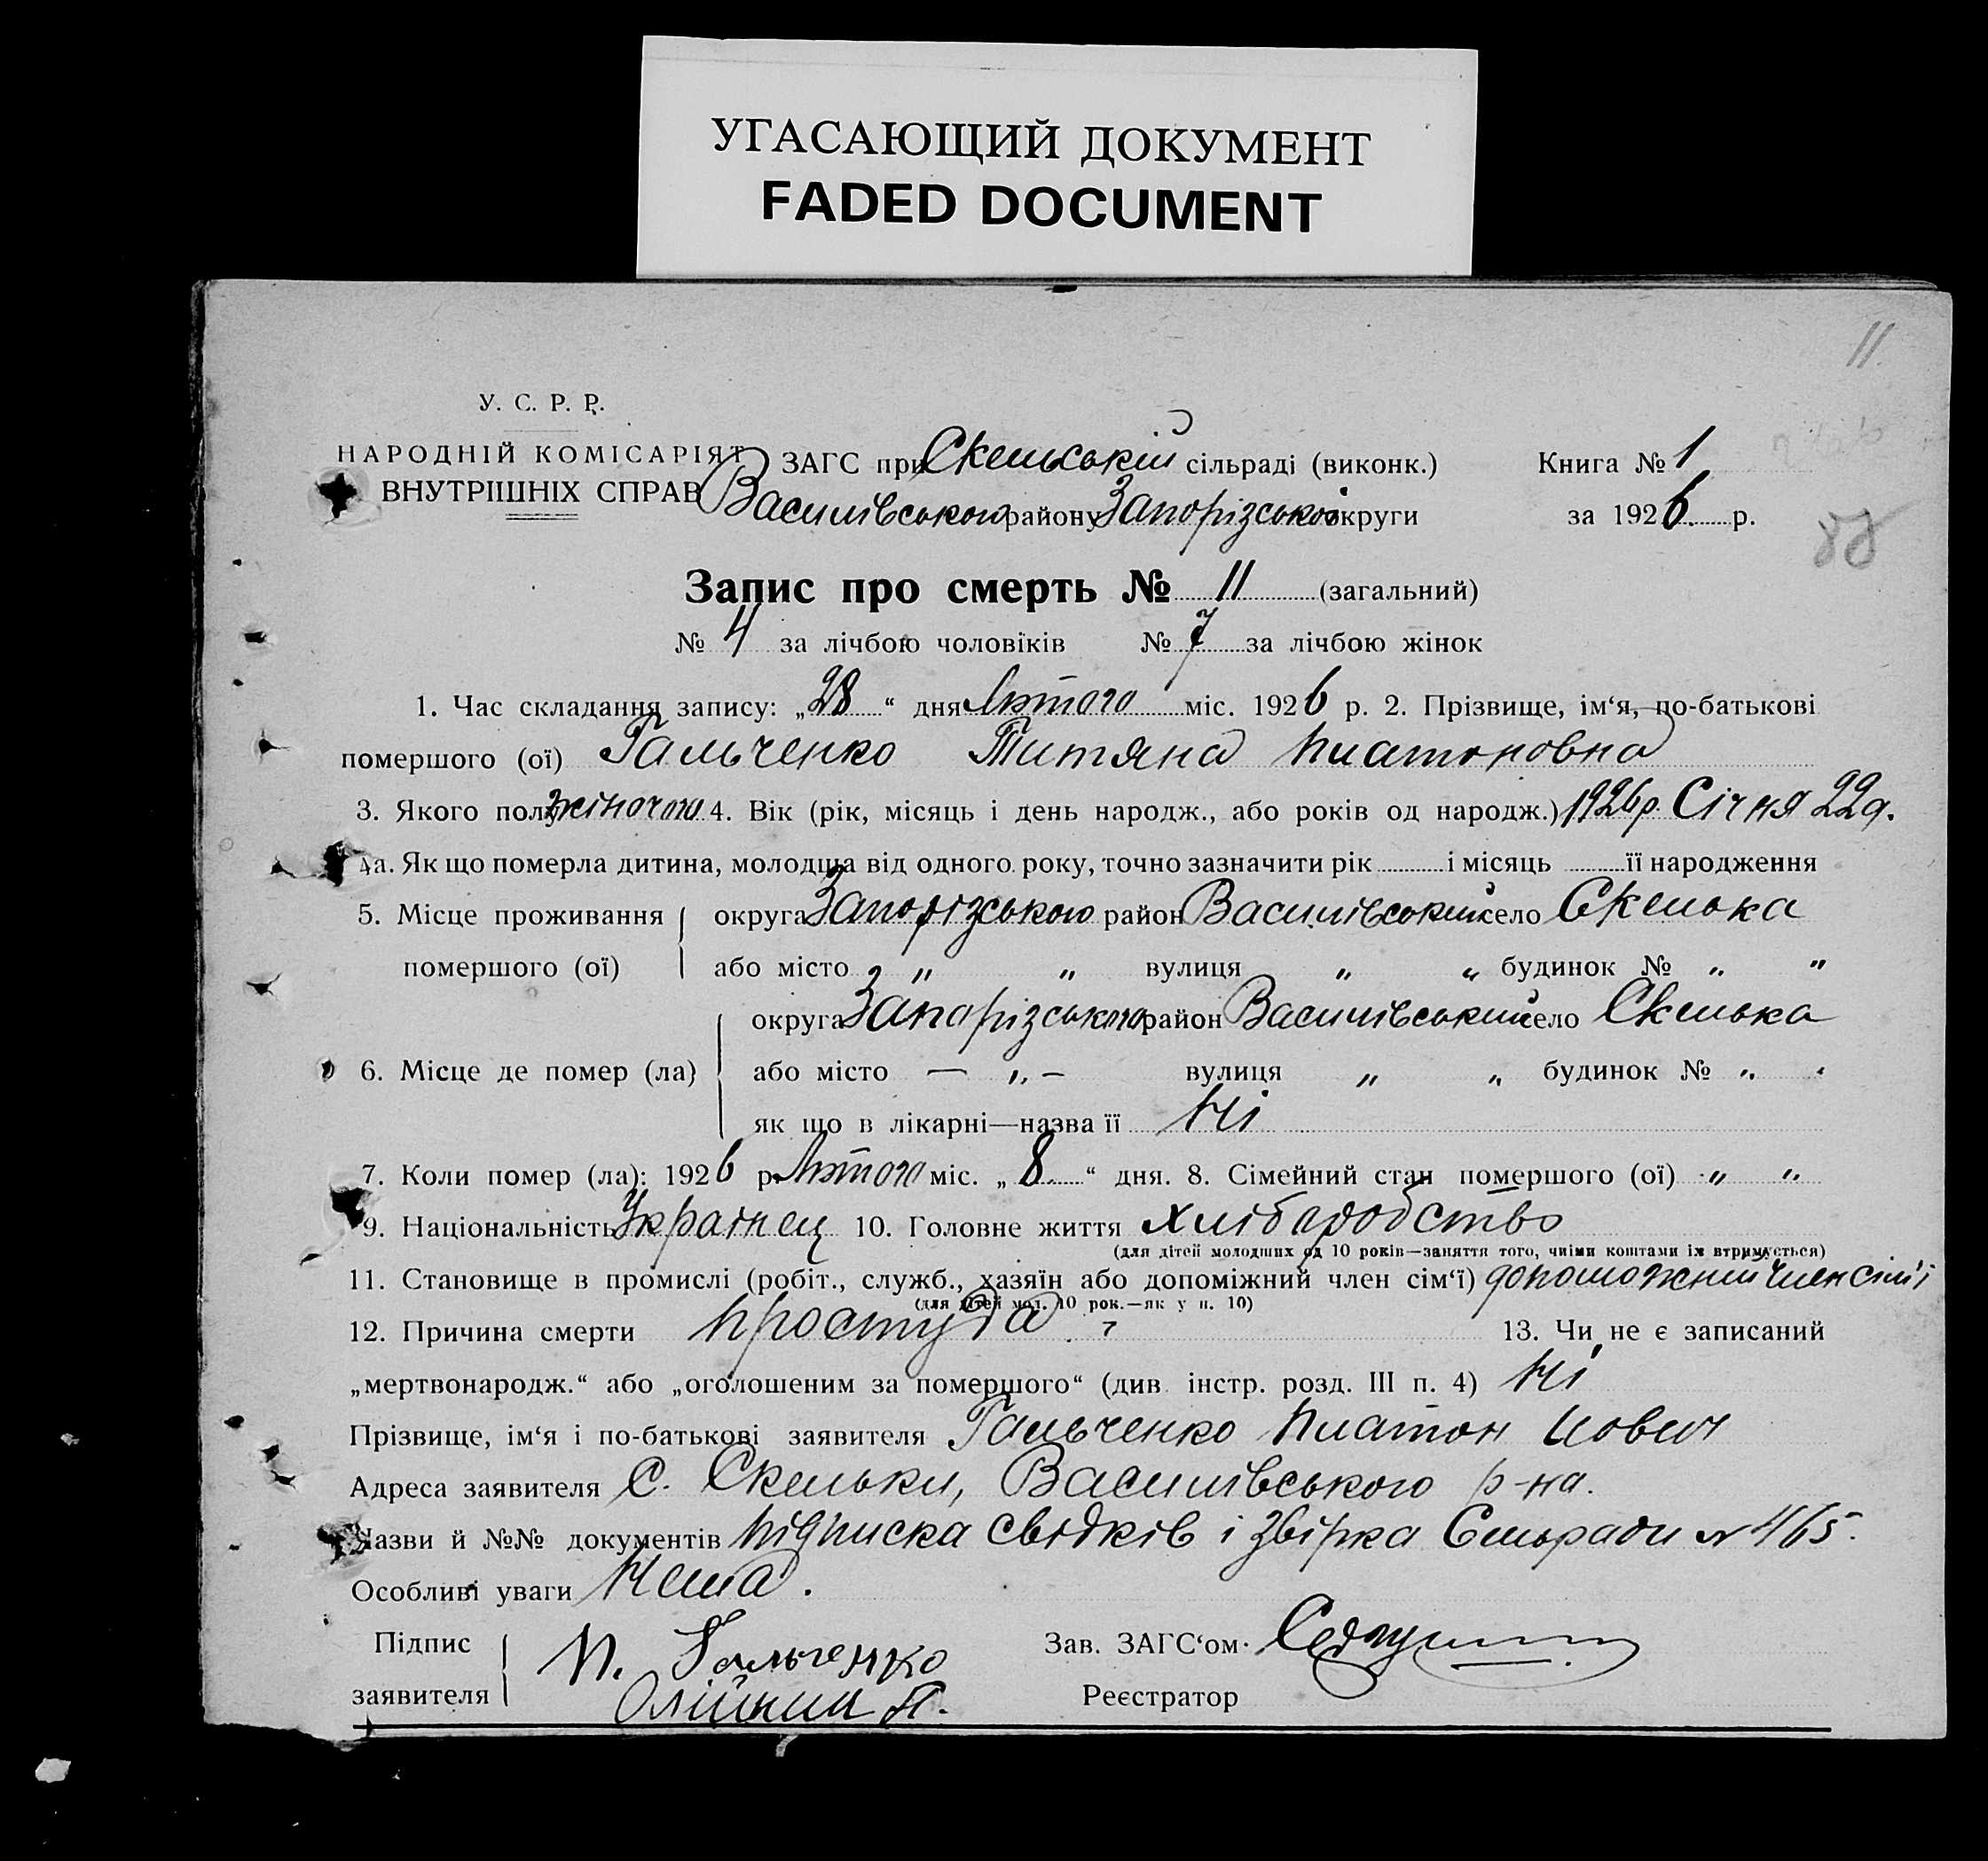 УГАСАЮЩИЙ ДОКУМЕНТ
FADED DOCUMENT
11
У. С. Р. Р.
НАРОДНІЙ КОМІСАРІЯТ
ВНУТРІШНІХ СПРАВ
ЗАГС при Скельській сільраді (виконк.) Книга № 1
Василівського району Запорізської округи за 1926 р.
Запис про смерть № 11 (загальний)
№ 4 за лічбою чоловіків № 7 за лічбою жінок
1. Час складання запису: „28“ дня Лютого міс. 1926 р. 2. Прізвище, ім‘я, по-батькові
помершого (ої) Гальченко Титяна Платоновна
3. Якого полу жіночого 4. Вік (рік, місяць і день народж., або років од народж.) 1926 р. Січня 22 д.
4а. Як що померла дитина, молодша від одного року, точно зазначити рік і місяць її народження
5. Місце проживання округа Запорізського район Василівський село Скелька
помершого (ої) або місто „ „ вулиця „ „ будинок № „ „
округа Запорізського район Василівський село Скелька
6. Місце де помер (ла) або місто — „ — вулиця „ „ будинок № „ „
як що в лікарні—назва її Ні
7. Коли помер (ла): 1926 р. Лютого міс. „8“ дня. 8. Сімейний стан помершого (ої) „ „
9. Національність Українец 10. Головне життя хліборобство
(для дітей молодших од 10 років—заняття того, чиїми коштами їх втримується)
11. Становище в промислі (робіт., служб., хазяїн або допоміжний член сім‘ї) допоможний член сімˊї
(для дітей мол. 10 рок.—як у п. 10)
12. Причина смерти простуда 13. Чи не є записаний
„мертвонародж.“ або „оголошеним за помершого“ (див. інстр. розд. III п. 4) Ні
Прізвище, ім‘я і по-батькові заявителя Гальченко Платон Иович
Адреса заявителя С. Скельки, Василівського р-на.
Назви й №№ документів підписка свідків і збірка Сельради № 465.
Особливі уваги Нема.
Підпис П. Гальченко Зав. ЗАГС‘ом
заявителя Олійник П. Реєстратор